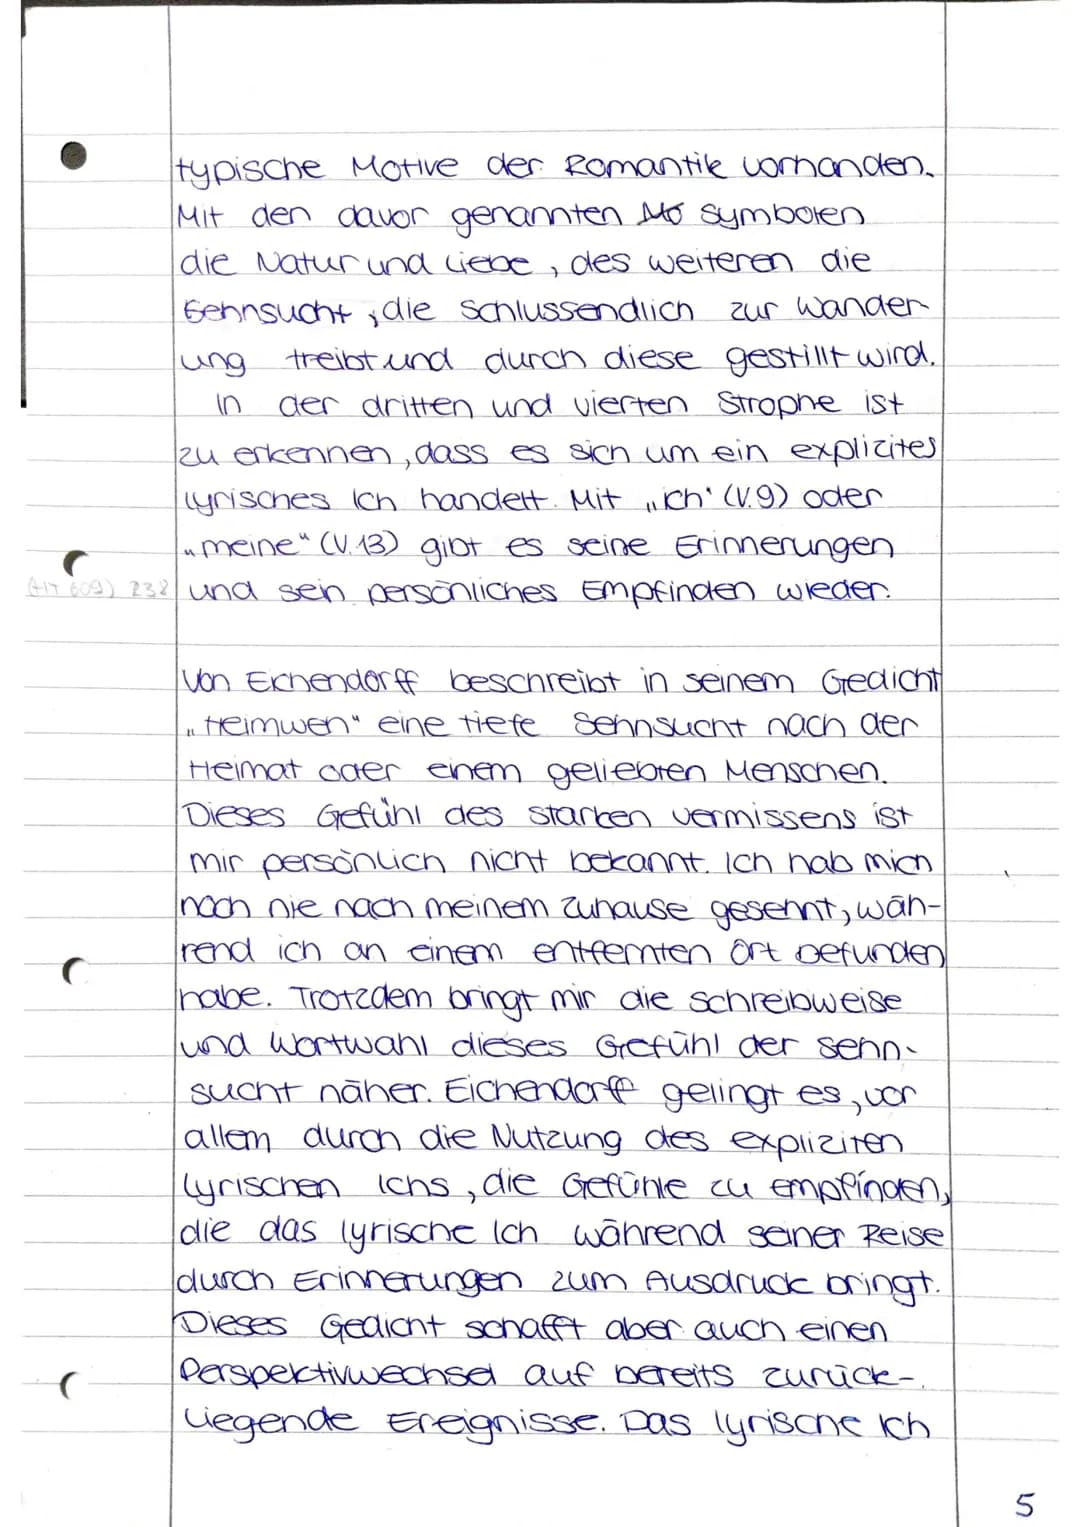 typische Motive der Romantik vorhanden.
Mit den davor genannten Mo Symbolen
die Natur und Liebe, des weiteren die
Sehnsucht, die schlussendlich zur Wander-
ung treibt und durch diese gestillt wird.
In der dritten und vierten Strophe ist
zu erkennen, dass es sich um ein explizites
lyrisches Ich handelt. Mit „ich" (V.9) oder
„meine" (V.13) gibt es seine Erinnerungen
(+17 609) 232 und sein persönliches Empfinden wieder.
Von Eichendorff beschreibt in seinem Gedicht
„Heimweh" eine tiefe Sehnsucht nach der
Heimat oder einem geliebten Menschen.
Dieses Gefühl des starken vermissens ist
mir persönlich nicht bekannt. Ich hab mich
noch nie nach meinem Zuhause gesehnt, wäh-
rend ich an einem entfernten Ort befunden
habe. Trotzdem bringt mir die Schreibweise
und Wortwahl dieses Gefühl der Sehn-
sucht näher. Eichendorff gelingt es, vor
allem durch die Nutzung des expliziten
lyrischen Ichs, die Gefühle zu empfinden,
die das lyrische Ich während seiner Reise
durch Erinnerungen zum Ausdruck bringt.
Dieses Gedicht schafft aber auch einen
Perspektivwechsel auf bereits zurück-
liegende Ereignisse. Das lyrische Ich
5